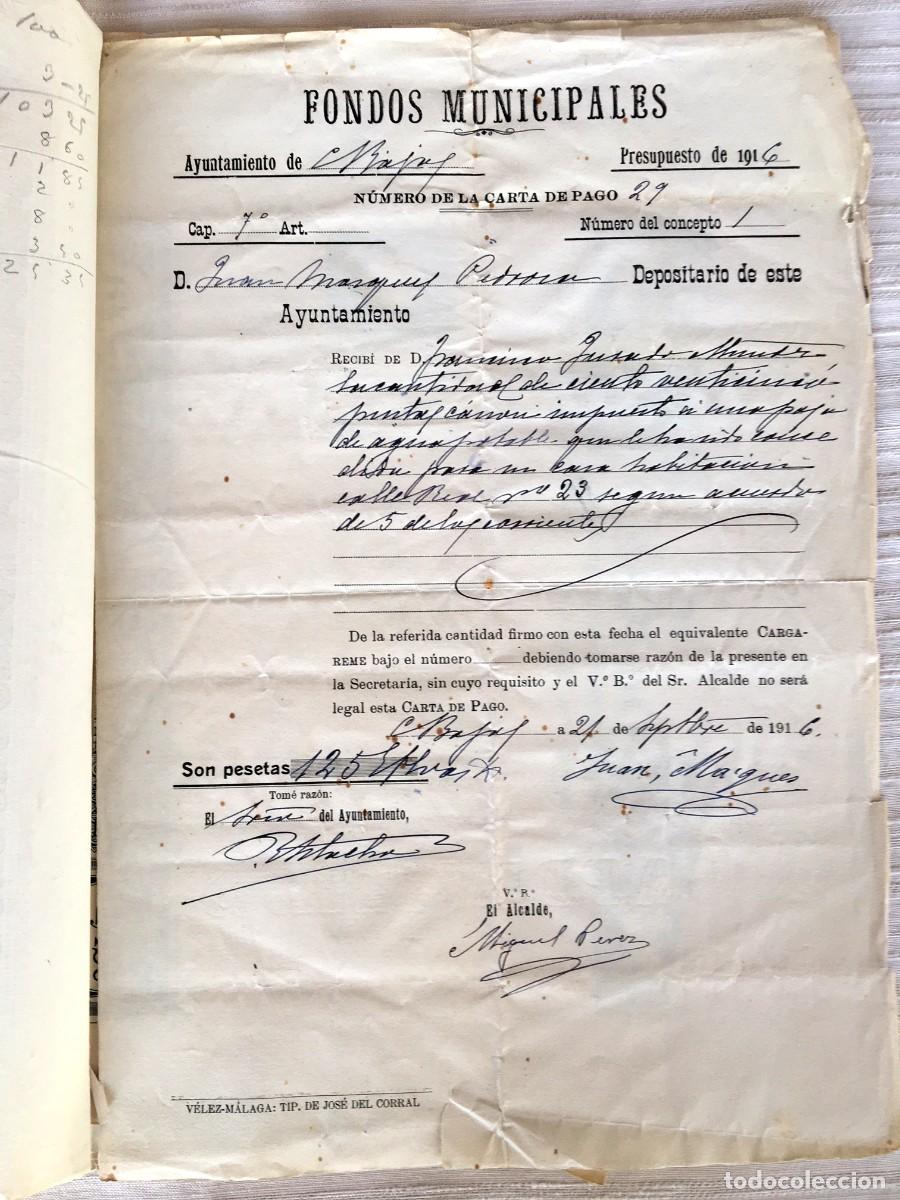 100
3 25
103 25
8 60
1 1 8 5
2
8
3 50
2 5 3 5
FONDOS MUNICIPALES
Ayuntamiento de C Bajas Presupuesto de 1916
NÚMERO DE LA CARTA DE PAGO 29
Cap. 7º Art. Número del concepto 1
D. Juan Marquez Pedrosa Depositario de este
Ayuntamiento
RECIBÍ DE D. Francisco Jurado
la cantidad de ciento venticinco
pesetas cánon impuesto a una paja
de agua potable que le ha sido conce
dida para su casa habitacion
calle Real nº 23 segun acuerdo
de 5 de los corrientes
De la referida cantidad firmo con esta fecha el equivalente CARGA-
REME bajo el número debiendo tomarse razón de la presente en
la Secretaría, sin cuyo requisito y el V.º B.º del Sr. Alcalde no será
legal esta CARTA DE PAGO.
C Bajas a 21 de Septbre de 1916.
Son pesetas 125
Juan Marques
Tomé razón:
El Srio del Ayuntamiento,
V.º B.º
El Alcalde,
Miguel Perez
VÉLEZ-MÁLAGA: TIP. DE JOSÉ DEL CORRAL
todocoleccion